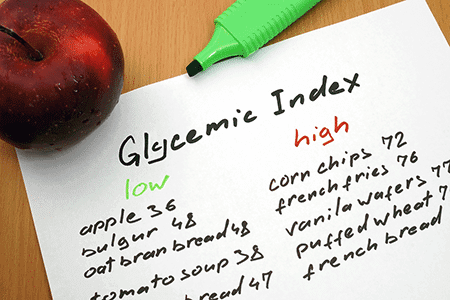 Glycemic Index
low
apple 36
bulgur 48
oat bran bread 48
tomato soup 38
bread 47
high
corn chips 72
french fries 76
vanila wafers 77
puffed wheat
french bread